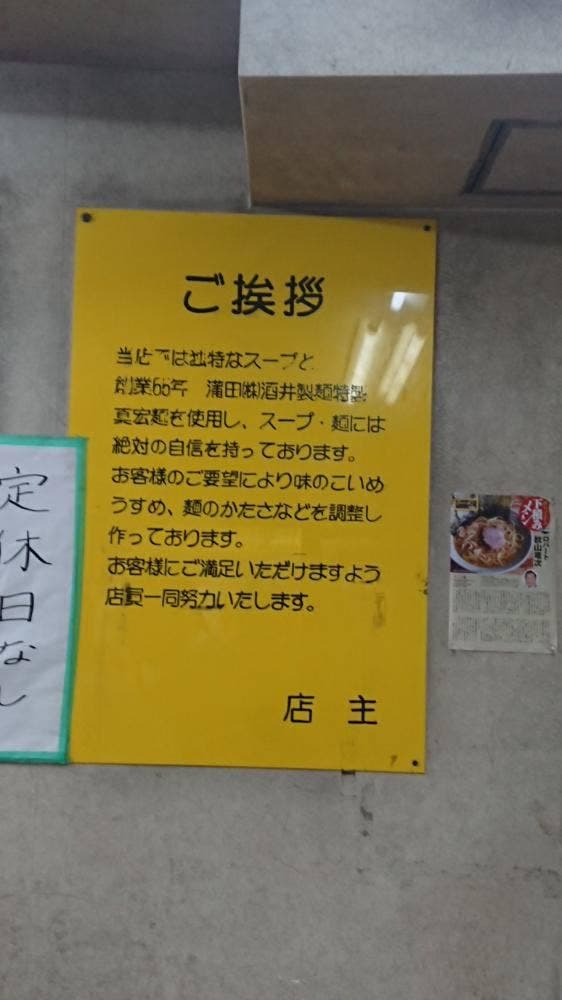 ご挨拶
当店では独特なスープと
創業65年 蒲田㈱酒井製麺特製
真宏麺を使用し、スープ・麺には
絶対の自信を持っております。
お客様のご要望により味のこいめ
うすめ、麺のかたさなどを調整し
作っております。
お客様にご満足いただけますよう
店員一同努力いたします。
店 主
定休日なし
下積みのメシ
ロバート
秋山竜次